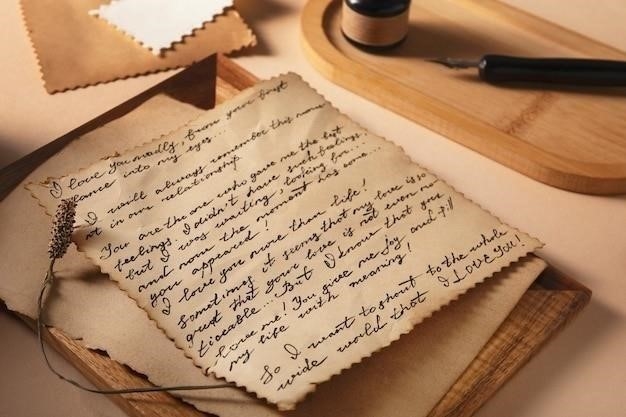 I love you madly, from your first
glance into my eyes...
I will always remember this moment
in our relationship.
You are the one who gave me the best
feelings. I didn't have such feelings,
but I was waiting, looking for...
and now the moment has come...
you appeared!
I love you more than life!
Sometimes it seems that my love is so
great that your love is not even no-
ticeable... But I know that you
love me! You give me joy and fill
my life with meaning!
So I want to shout to the whole
wide world that I LOVE YOU!